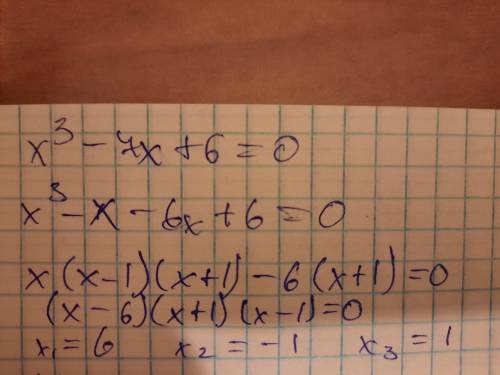 x³ - 7x + 6 = 0
x³ - x - 6x + 6 = 0
x (x-1)(x+1) - 6 (x+1) = 0
(x - 6)(x+1)(x-1) = 0
x₁ = 6 x₂ = -1 x₃ = 1